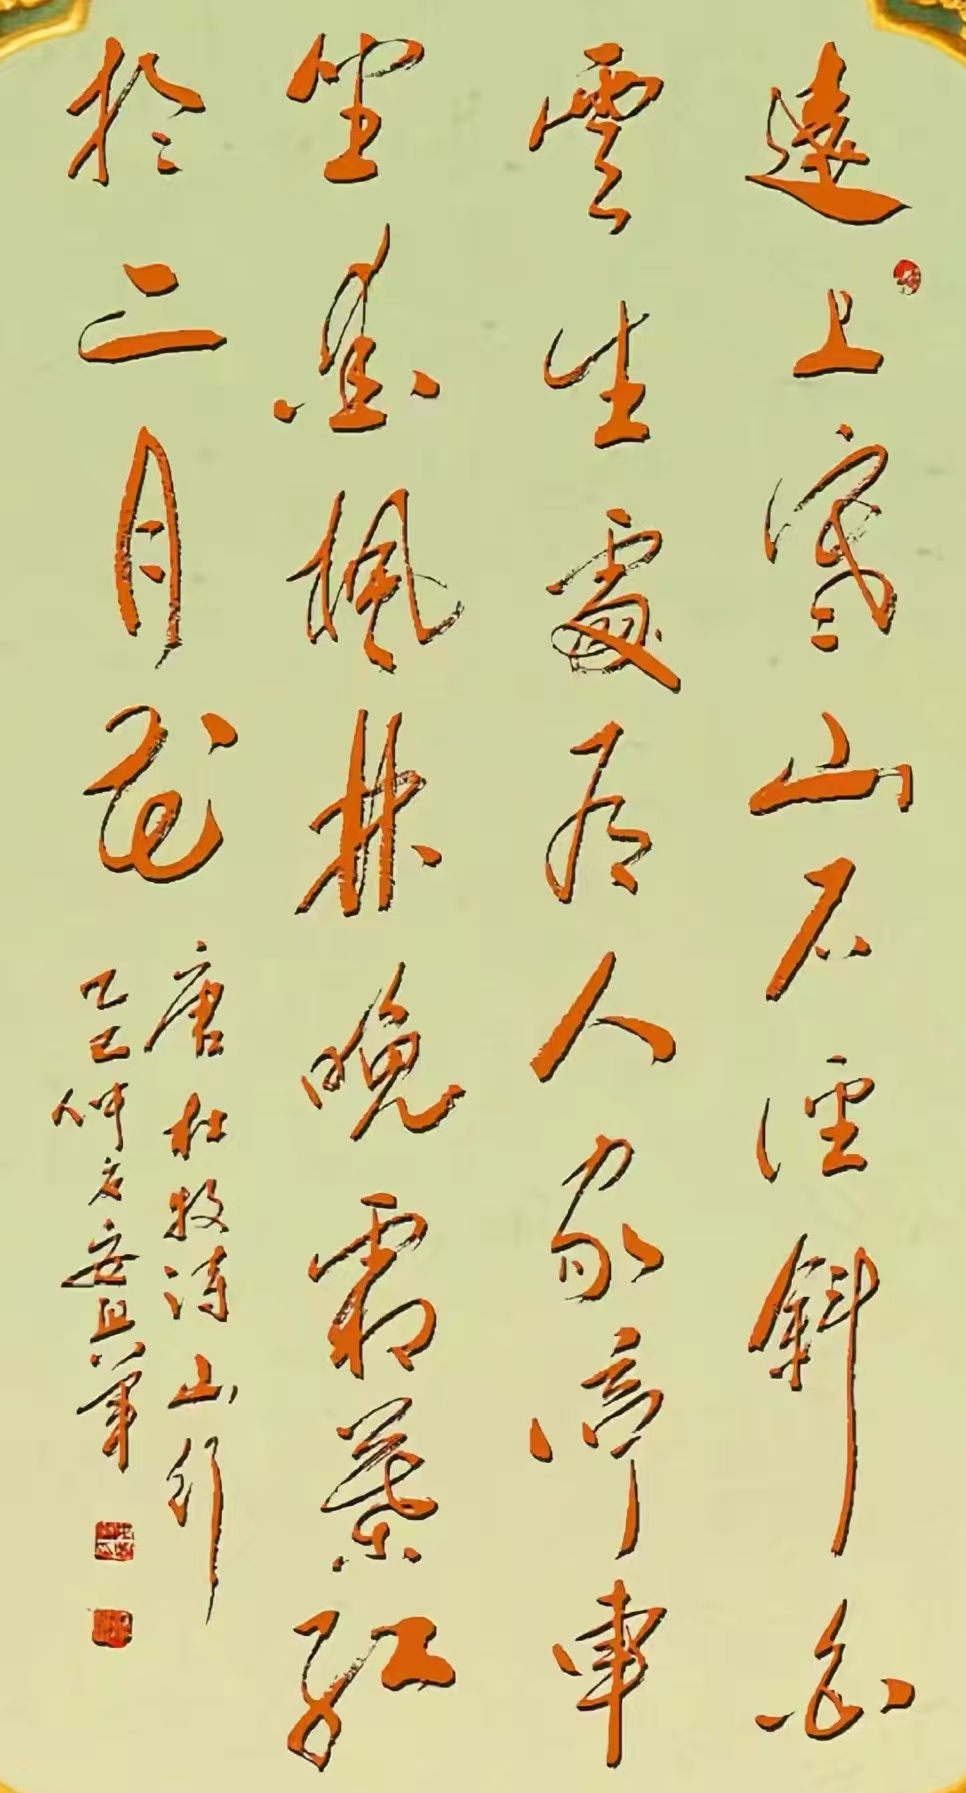 遠上寒山石徑斜白
雲生處有人家停車
坐愛楓林晚霜葉紅
於二月花
唐杜牧詩山行
乙巳